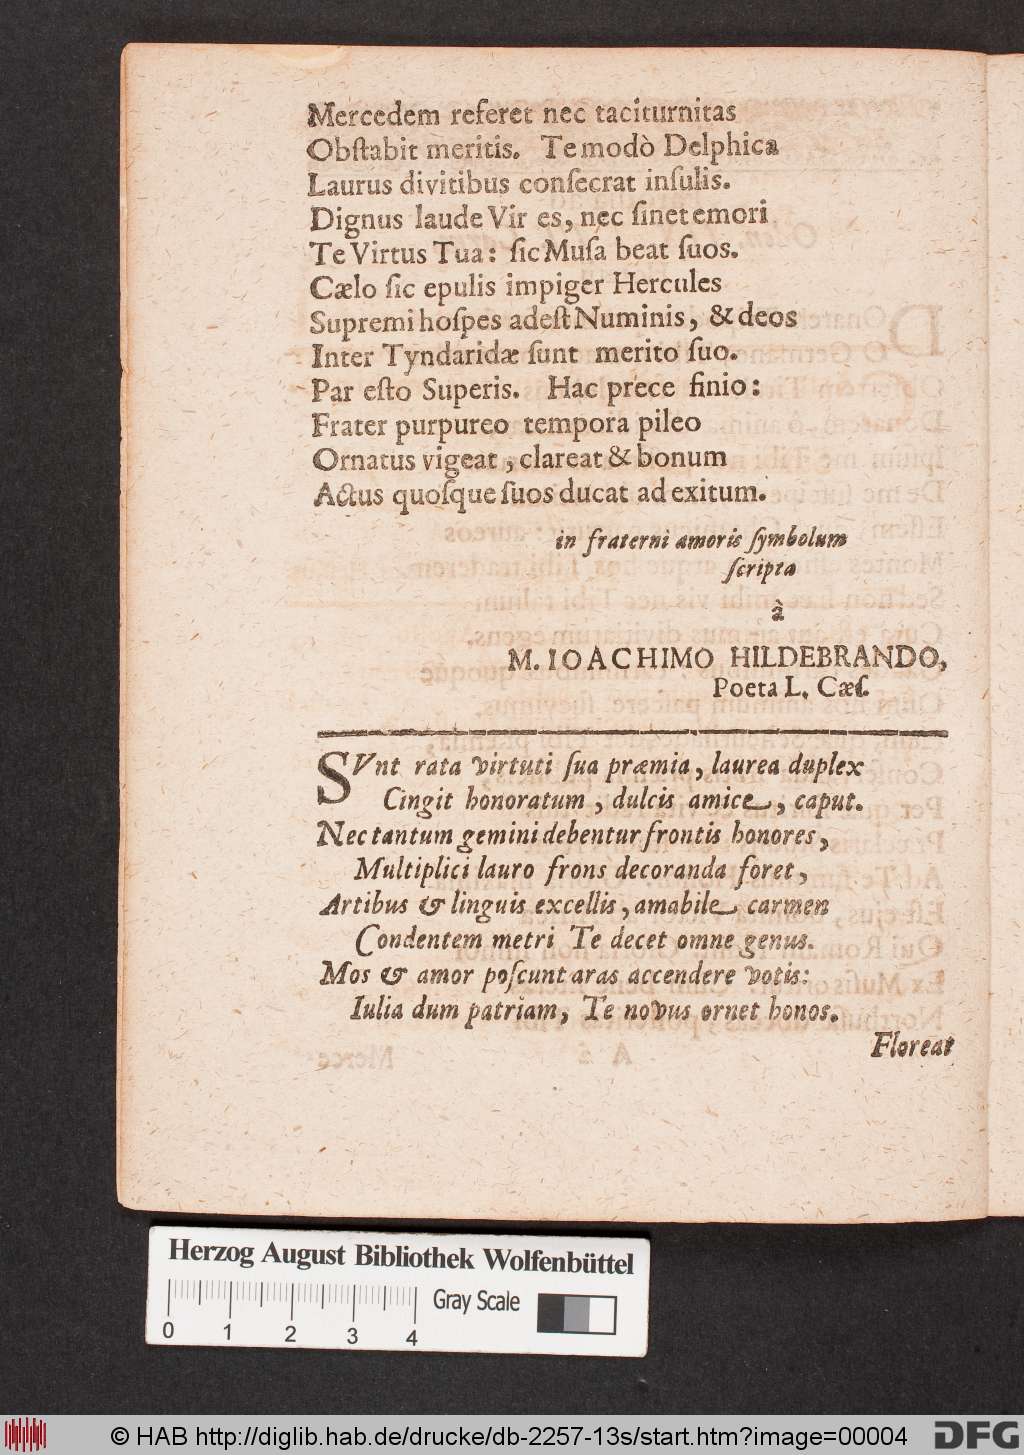 Mercedem referet nec taciturnitas
Obſtabit meritis. Te modò Delphica
Laurus divitibus conſecrat inſulis.
Dignus laude Vir es, nec ſinet emori
Te Virtus Tua: ſic Muſa beat ſuos.
Cælo ſic epulis impiger Hercules
Supremi hoſpes adeſt Numinis, & deos
Inter Tyndaridæ ſunt merito ſuo.
Par eſto Superis. Hac prece finio:
Frater purpureo tempora pileo
Ornatus vigeat, clareat & bonum
Actus quoſque ſuos ducat ad exitum.
in fraterni amoris ſymbolum
ſcripta
à
M. IOACHIMO HILDEBRANDO,
Poeta L. Cæſ.
SVnt rata virtuti ſua præmia, laurea duplex
Cingit honoratum, dulcis amice, caput.
Nec tantum gemini debentur frontis honores,
Multiplici lauro frons decoranda foret,
Artibus & linguis excellis, amabile carmen
Condentem metri Te decet omne genus.
Mos & amor poſcunt aras accendere votis:
Iulia dum patriam, Te novus ornet honos.
Floreat
Herzog August Bibliothek Wolfenbüttel
Gray Scale
0 1 2 3 4
© HAB http://diglib.hab.de/drucke/db-2257-13s/start.htm?image=00004
DFG